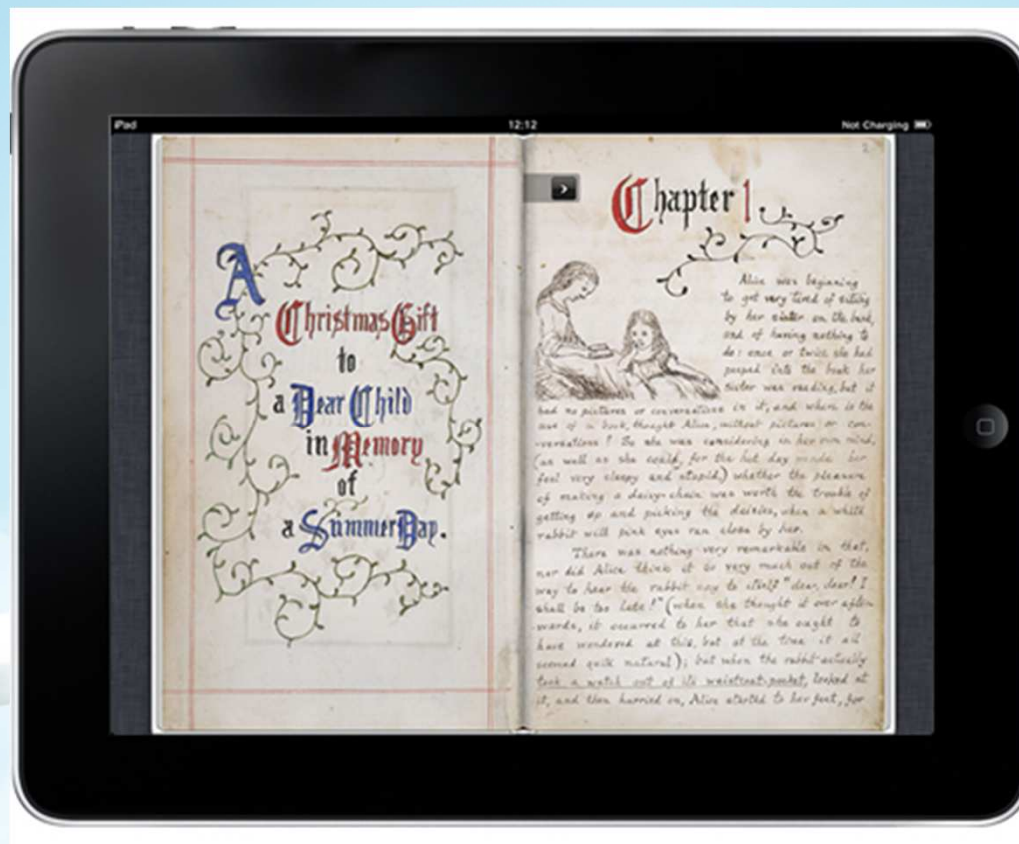 iPad 12:12 Not Charging
A
Christmas Gift
to
a Dear Child
in Memory
of
a Summer Day.
2
Chapter 1
Alice was beginning
to get very tired of sitting
by her sister on the bank,
and of having nothing to
do: once or twice she had
peeped into the book her
sister was reading, but it
had no pictures or conversations in it, and where is the
use of a book, thought Alice, without pictures or con-
versations? So she was considering in her own mind,
(as well as she could, for the hot day made her
feel very sleepy and stupid,) whether the pleasure
of making a daisy-chain was worth the trouble of
getting up and picking the daisies, when a white
rabbit with pink eyes ran close by her.
There was nothing very remarkable in that,
nor did Alice think it so very much out of the
way to hear the rabbit say to itself "dear, dear! I
shall be too late!" (when she thought it over after-
wards, it occurred to her that she ought to
have wondered at this, but at the time it all
seemed quite natural); but when the rabbit actually
took a watch out of its waistcoat-pocket, looked at
it, and then hurried on, Alice started to her feet, for